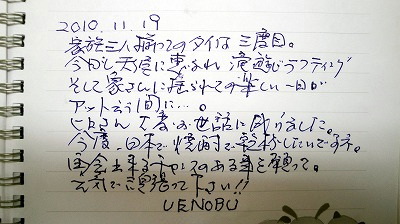 2010.11.19
家族三人揃ってのタイは三度目。
今回も天候に恵まれ滝遊びラフティング
そして象さんに揺られての楽しい一日が
アッと云う間に…。
さん 大変お世話に成りました。
今度、日本で焼酎で乾杯したいですネ。
再会出来るチャンスのある事を願って。
元気で頑張って下さい!!
UENOBU